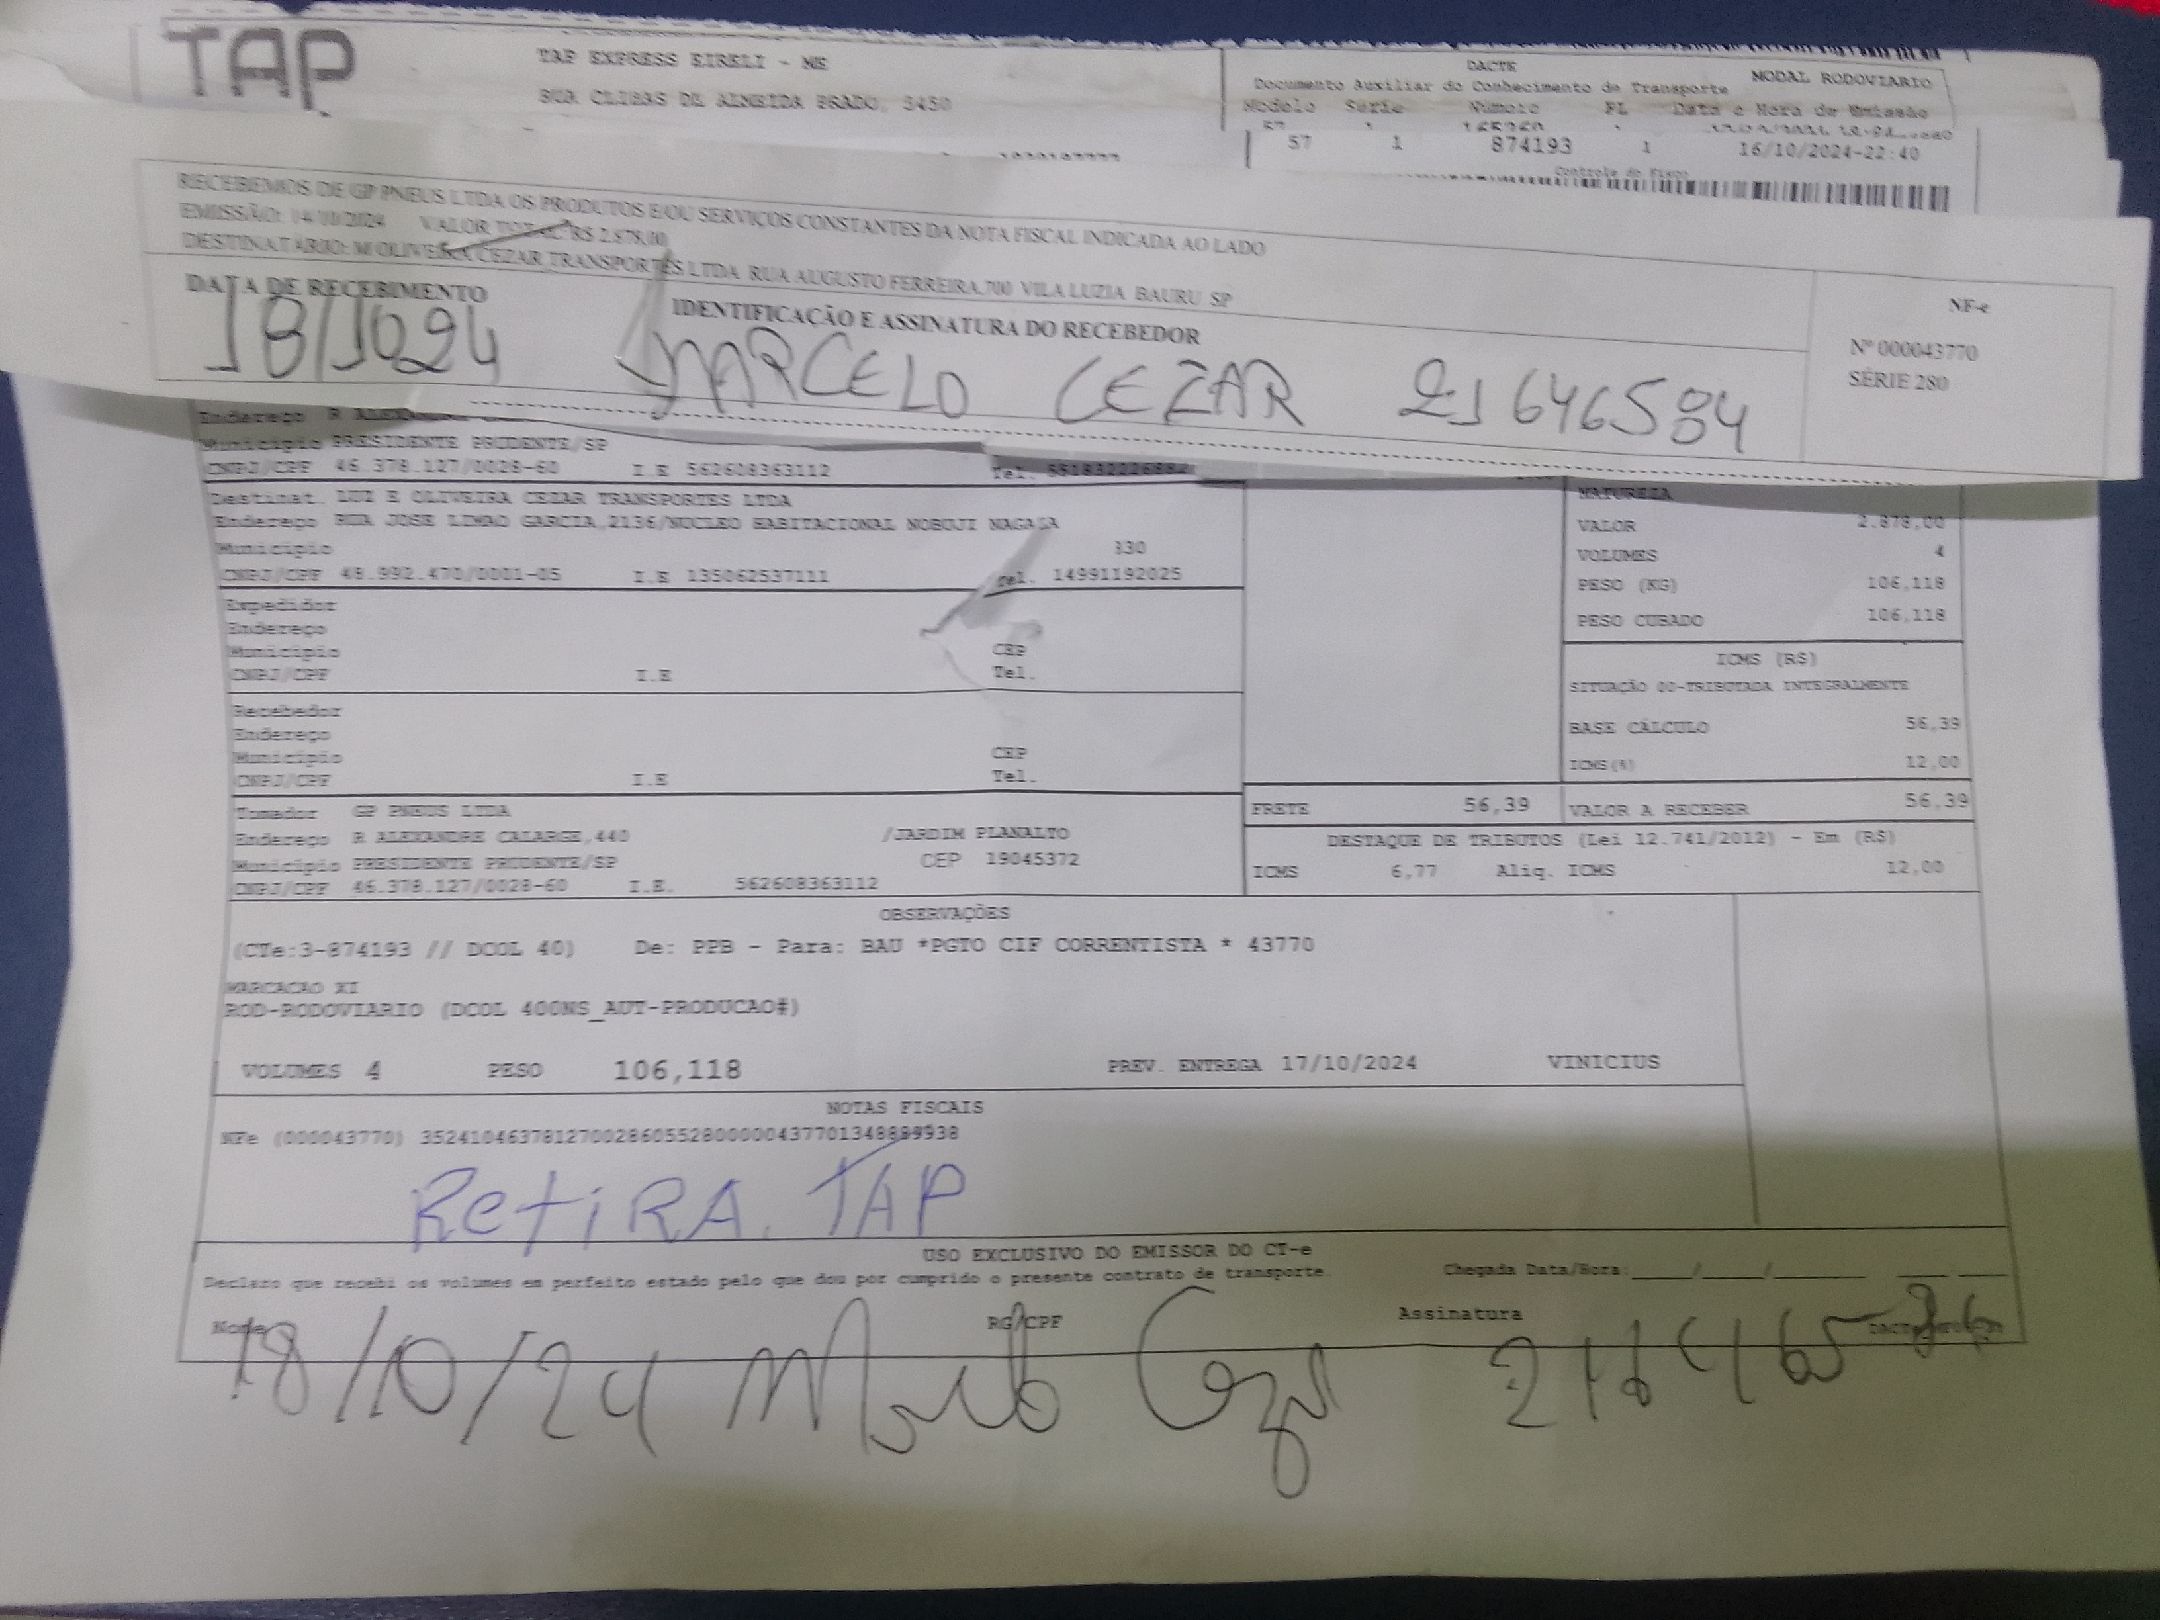 TAP
TAP EXPRESS EIRELI - ME
RUA CLIBAS DE ALMEIDA PRADO, 3450
DACTE
MODAL RODOVIARIO
Documento Auxiliar do Conhecimento de Transporte
Modelo Serie Número FL Data e Hora de Emissão
57 1 874193 1 16/10/2024-22:40
Controle do Fisco
RECEBEMOS DE GP PNEUS LTDA OS PRODUTOS E/OU SERVIÇOS CONSTANTES DA NOTA FISCAL INDICADA AO LADO
EMISSÃO: 14/10/2024 VALOR TOTAL: R$ 2.878,00
DESTINATÁRIO: M OLIVEIRA CEZAR TRANSPORTES LTDA RUA AUGUSTO FERREIRA,700 VILA LUZIA BAURU SP
DATA DE RECEBIMENTO
IDENTIFICAÇÃO E ASSINATURA DO RECEBEDOR
18/1024 MARCELO CEZAR 21646584
NF-e
Nº 000043770
SÉRIE 280
Endereço R ALEXANDRE
Municipio PRESIDENTE PRUDENTE/SP
CNPJ/CPF 46.378.127/0028-60 I.E 562608363112 Tel.
Destinat. LUZ E OLIVEIRA CEZAR TRANSPORTES LTDA
Endereço RUA JOSE LIMAO GARCIA,2136/NUCLEO HABITACIONAL NOBUJI NAGASA
Municipio 330
CNPJ/CPF 48.992.470/0001-05 I.E 135062537111 Tel. 14991192025
Expedidor
Endereço
Municipio CEP
CNPJ/CPF I.E Tel.
Recebedor
Endereço
Municipio CEP
CNPJ/CPF I.E Tel.
Tomador GP PNEUS LTDA
Endereço R ALEXANDRE CALARGE,440 /JARDIM PLANALTO
Municipio PRESIDENTE PRUDENTE/SP CEP 19045372
CNPJ/CPF 46.378.127/0028-60 I.E. 562608363112
NATUREZA
VALOR 2.878,00
VOLUMES 4
PESO (KG) 106,118
PESO CUBADO 106,118
ICMS (R$)
SITUAÇÃO 00-TRIBUTADA INTEGRALMENTE
BASE CÁLCULO 56,39
ICMS(%) 12,00
FRETE 56,39 VALOR A RECEBER 56,39
DESTAQUE DE TRIBUTOS (Lei 12.741/2012) - Em (R$)
ICMS 6,77 Aliq. ICMS 12,00
OBSERVAÇÕES
(CTe:3-874193 // DCOL 40) De: PPB - Para: BAU *PGTO CIF CORRENTISTA * 43770
MARCACAO XI
ROD-RODOVIARIO (DCOL 400NS_AUT-PRODUCAO#)
VOLUMES 4 PESO 106,118 PREV. ENTREGA 17/10/2024 VINICIUS
NOTAS FISCAIS
NFe (000043770) 35241046378127002860552800000437701348899938
RetiRA. TAP
USO EXCLUSIVO DO EMISSOR DO CT-e
Declaro que recebi os volumes em perfeito estado pelo que dou por cumprido o presente contrato de transporte.
Chegada Data/Hora:____/____/______ ___ ___
Nome RG/CPF Assinatura
18/10/24 Marcelo Cezar